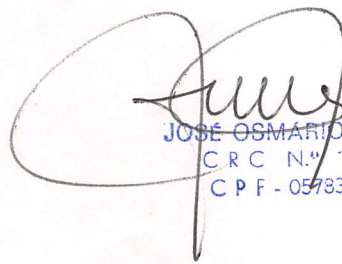 JOSÉ OSMÁRIO
C R C N.º
C P F - 05783